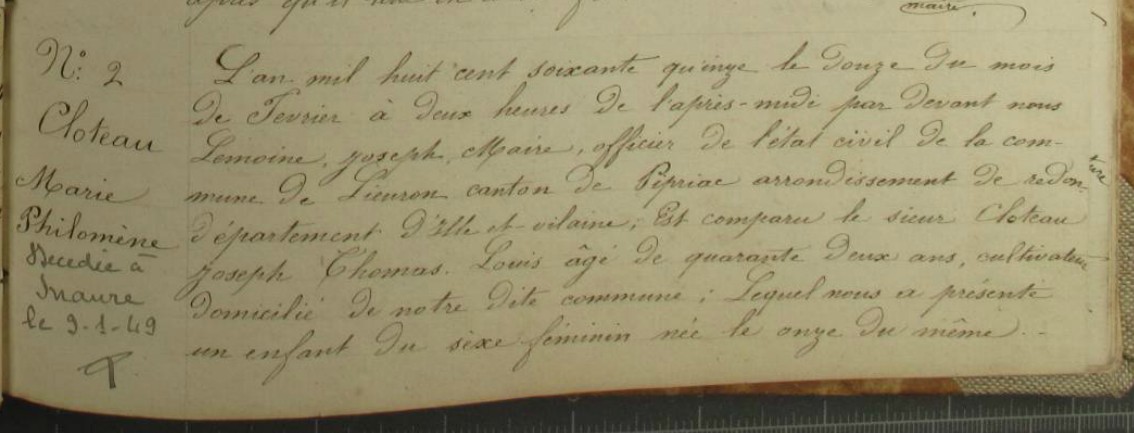 maire
N.° 2
Cloteau
Marie
Philomène
Décédée à
le 9-1-49
L'an mil huit cent soixante quinze le douze du mois
de Fevrier à deux heures de l'après-midi par devant nous
Lemoine, Joseph, Maire, officier de l'état civil de la com-
mune de Lieuron canton de Pipriac arrondissement de redon
département d'Ille et-vilaine; Est comparu le sieur Cloteau
Joseph Thomas. Louis âgé de quarante deux ans, cultivateur
domicilié de notre dite commune; Lequel nous a présenté
un enfant du sexe féminin née le onze du même